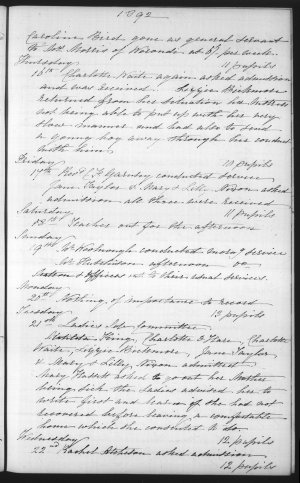 1892
Caroline Hird gone as general servant
to Mrs Morris of at $7 per week.
Thursday 11 pupils
16th Charlotte Waite again asked admission
and was received. Lizzie Beckmore
returned from her situation her Mistress
not being able to put up with her very
slow manner and had also to send
a young boy away through her conduct
with him.
Friday 10 pupils
17th Revd Garnsey conducted service
Jane Taylor & Mary & Lilly Nixon asked
admission all three were received
Saturday 11 pupils
18th Teacher out for the afternoon
Sunday
19th Mr conducted morng Service
Mr Hutchison afternoon Do
Matron & Officers out to their usual services.
Monday
20th Nothing of importance to record
Tuesday 13 pupils
21st Ladies Sub Committee
Matilda King, Charlotte Charlotte
Waite, Lizzie Beckmore, Jane Taylor,
& Mary & Lilly Nixon admitted
Mary asked to go out her Mother
being sick the ladies advised her to
write first and hear if she had not
recovered before leaving a comfortable
home which she consented to do.
Wednesday 12 pupils
22nd Rachel asked admission
12 pupils